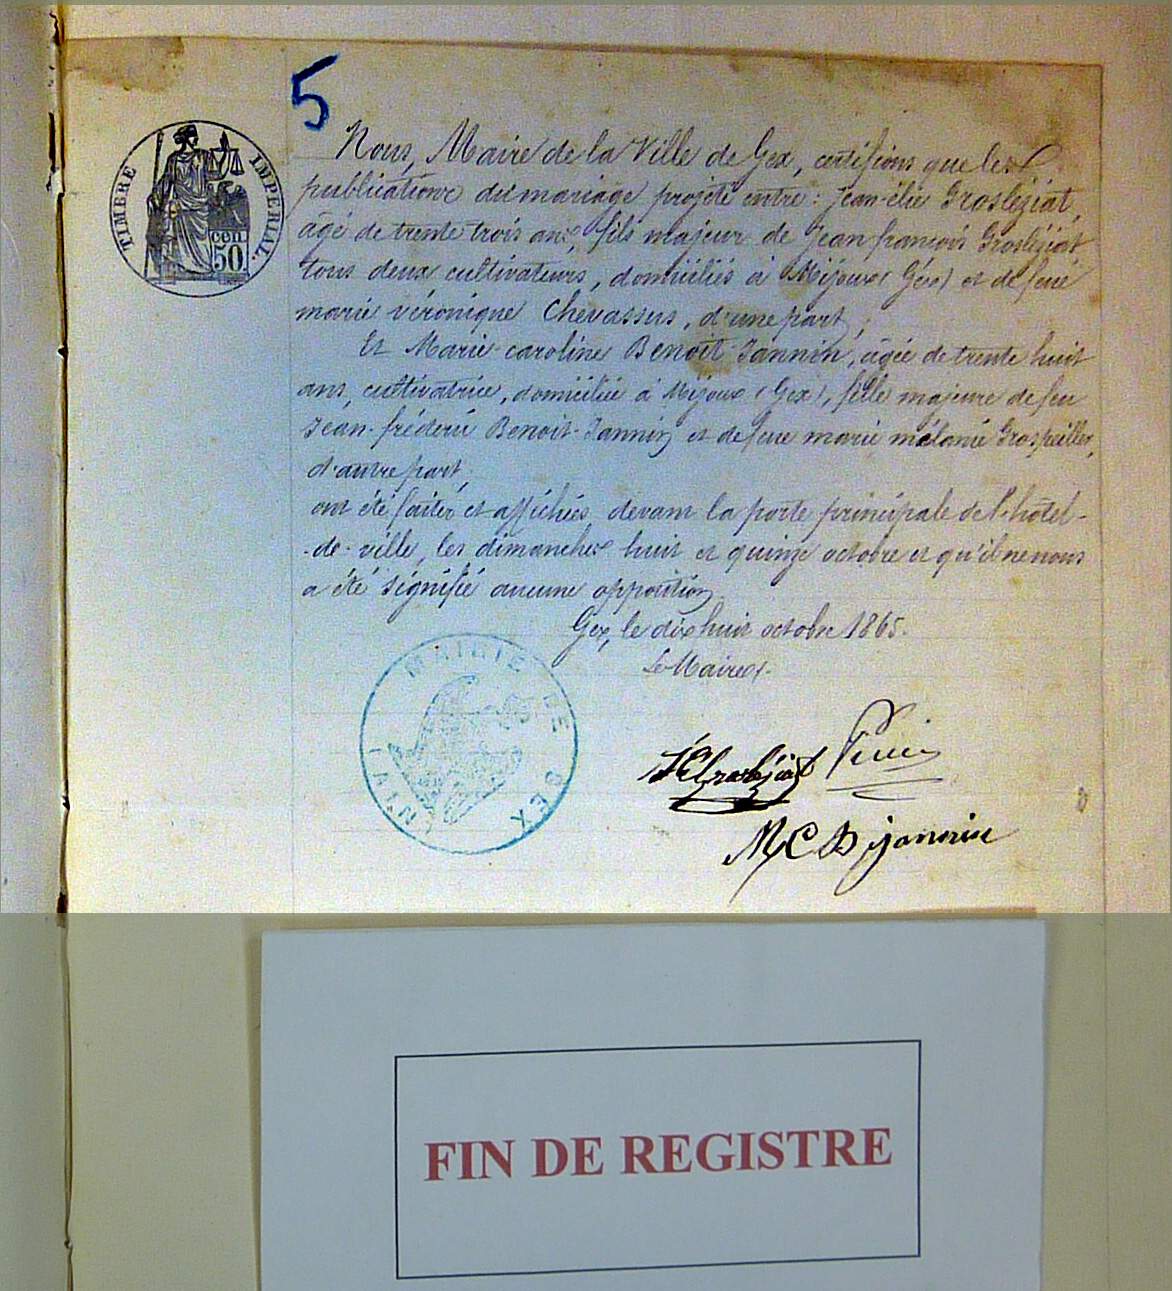 5
TIMBRE IMPERIAL.
cen
50
Nous, Maire de la Ville de Gex, certifions que les
publications du mariage projeté entre: Jean-élie Grosléziat,
âgé de trente trois ans, fils majeur de Jean françois Grosléziat,
tous deux cultivateurs, domiciliés à Mijoux (Gex) et de feue
marie véronique Chevassus, d'une part;
Et Marie-caroline Benoit-Jannin, âgée de trente huit
ans, cultivatrice, domiciliée à Mijoux (Gex), fille majeure de feu
Jean-frédéric Benoit-Jannin et de feue marie mélanie Grospeiller,
d'autre part,
ont été faites et affichées devant la porte principale de l'hôtel-
-de-ville, les dimanches huit et quinze octobre et qu'il ne nous
a été signifié aucune opposition.
Gex, le dix huit octobre 1865.
Le Maire
MAIRIE DE GEX
(AIN)
M C B jannin
FIN DE REGISTRE